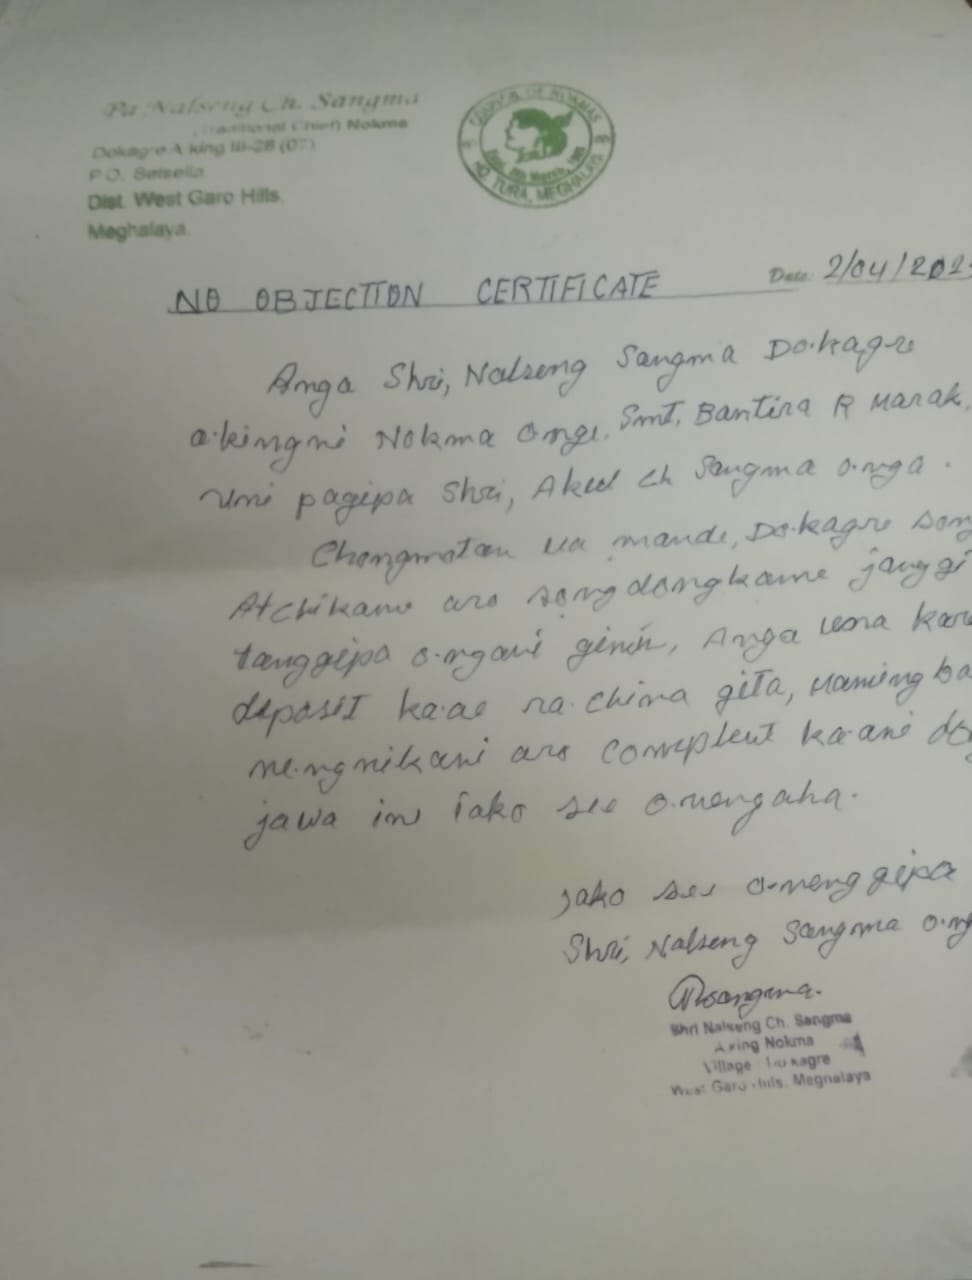 Pa Nalseng Ch. Sangma
(Traditional Chief) Nokma
Dokagre A·king III-28 (07)
P.O. Selsella.
Dist. West Garo Hills.
Meghalaya.
COUNCIL OF NOKMAS
HQ. TURA, MEGHALAYA
NO OBJECTION CERTIFICATE
Date: 2/04/202
Anga Shri, Nalseng Sangma Do·kagre
a·kingni Nokma onge. Smt, Bantira R Marak,
uni pagipa Shri, Ch Sangma o·nga.
Chongmotan ua mande, Do·kagre song
Atchikani aro songdongkame janggi
tanggipa o·ngani ginin, Anga uona
deposit ka·ae ra·china gita,
me·ngnikani aro ka·ani
jawa ine iako see o·nengaha.
Jako see o·nenggipa
Shri, Nalseng Sangma o·ng
Shri Nalseng Ch. Sangma
A·king Nokma
Village Do·kagre
West Garo Hills, Meghalaya